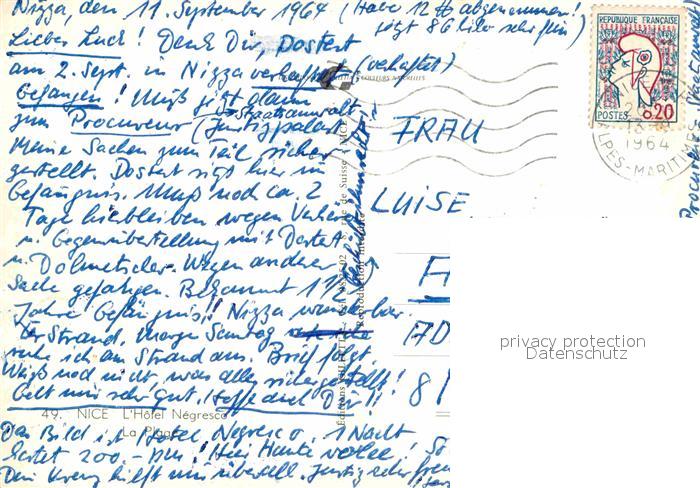 Nizza, den 11. September 1964 (Habe 12 ℔ abgenommen!
jetzt 86 kilo sehr fein)
Lieber Luck! Denk Dir, Dostert
am 2. Sept. in Nizza verhaftet (verhaftet)
Gefangen! Muß jetzt
Staatsanwalt
zum Procureur (Justizpalast
Meine Sachen zum Teil sicher
gestellt. Dostert sitzt hier im
Gefängnis. Muß noch ca. 2
Tage hierbleiben wegen Verhör
u. Gegenüberstellung mit Dostert
u. Dolmetscher. Wegen anderer
Sache gefangen. Bekommt 1 1/2
Jahre Gefängnis!! Nizza wunderbar.
Strand. Morgen Sonntag
ruhe ich am Strand aus. Brief folgt.
Weiß noch nicht, was alles sichergestellt!
Geht mir sehr gut. Hoffe auch Dir!!
49. NICE L'Hôtel Négresco
La Plage
Das Bild ist Hotel Negresco. 1 Nacht
kostet 200.- DM! Hier Heute volle! So
Dein Kreuz hilft mir überall. Justiz sehr
REPUBLIQUE FRANÇAISE
POSTES 0,20
1964
ALPES-MARITIMES
FRAU
LUISE
privacy protection
Datenschutz